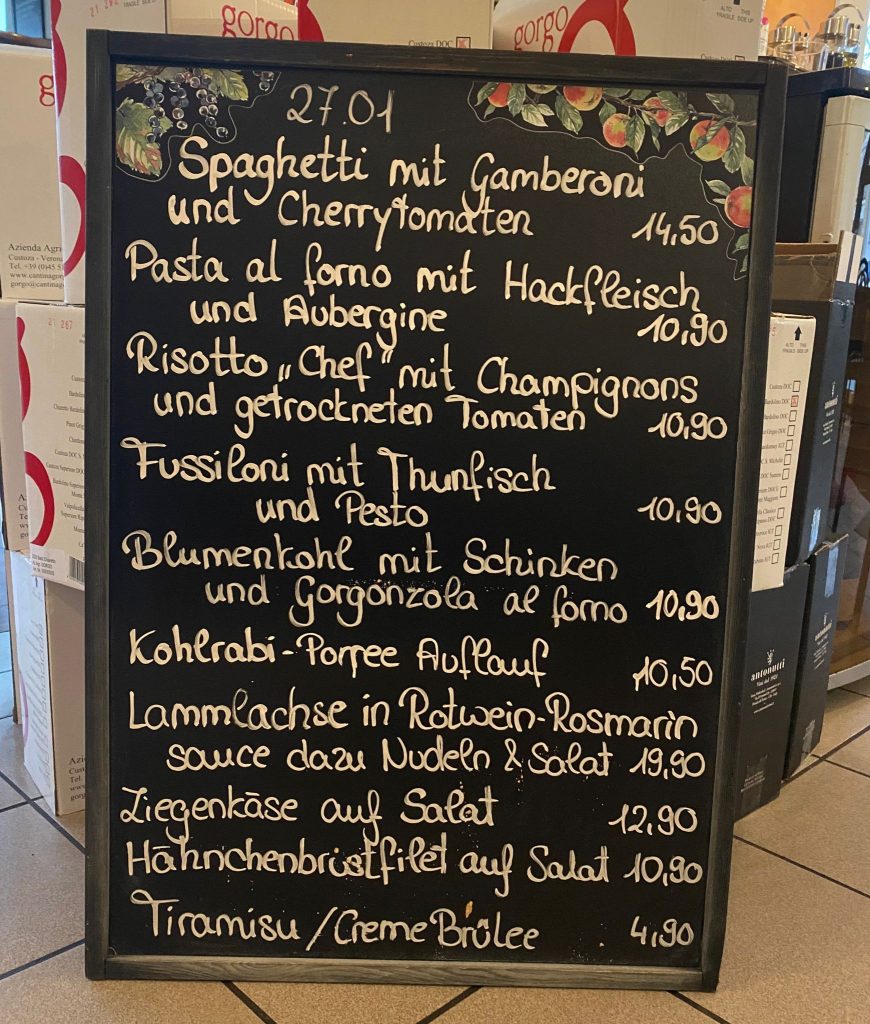 27.01
Spaghetti mit Gamberoni
und Cherrytomaten 14,50
Pasta al forno mit Hackfleisch
und Aubergine 10,90
Risotto „Chef“ mit Champignons
und getrockneten Tomaten 10,90
Fussiloni mit Thunfisch
und Pesto 10,90
Blumenkohl mit Schinken
und Gorgonzola al forno 10,90
Kohlrabi-Porree Auflauf 10,50
Lammlachse in Rotwein-Rosmarin
sauce dazu Nudeln & Salat 19,90
Ziegenkäse auf Salat 12,90
Hähnchenbrustfilet auf Salat 10,90
Tiramisu / Creme Brûlee 4,90
gorgo
gorgo
Custoza DOC
ALTO THIS
FRAGILE SIDE UP
Azienda Agri
Custoza - Verona
antonutti